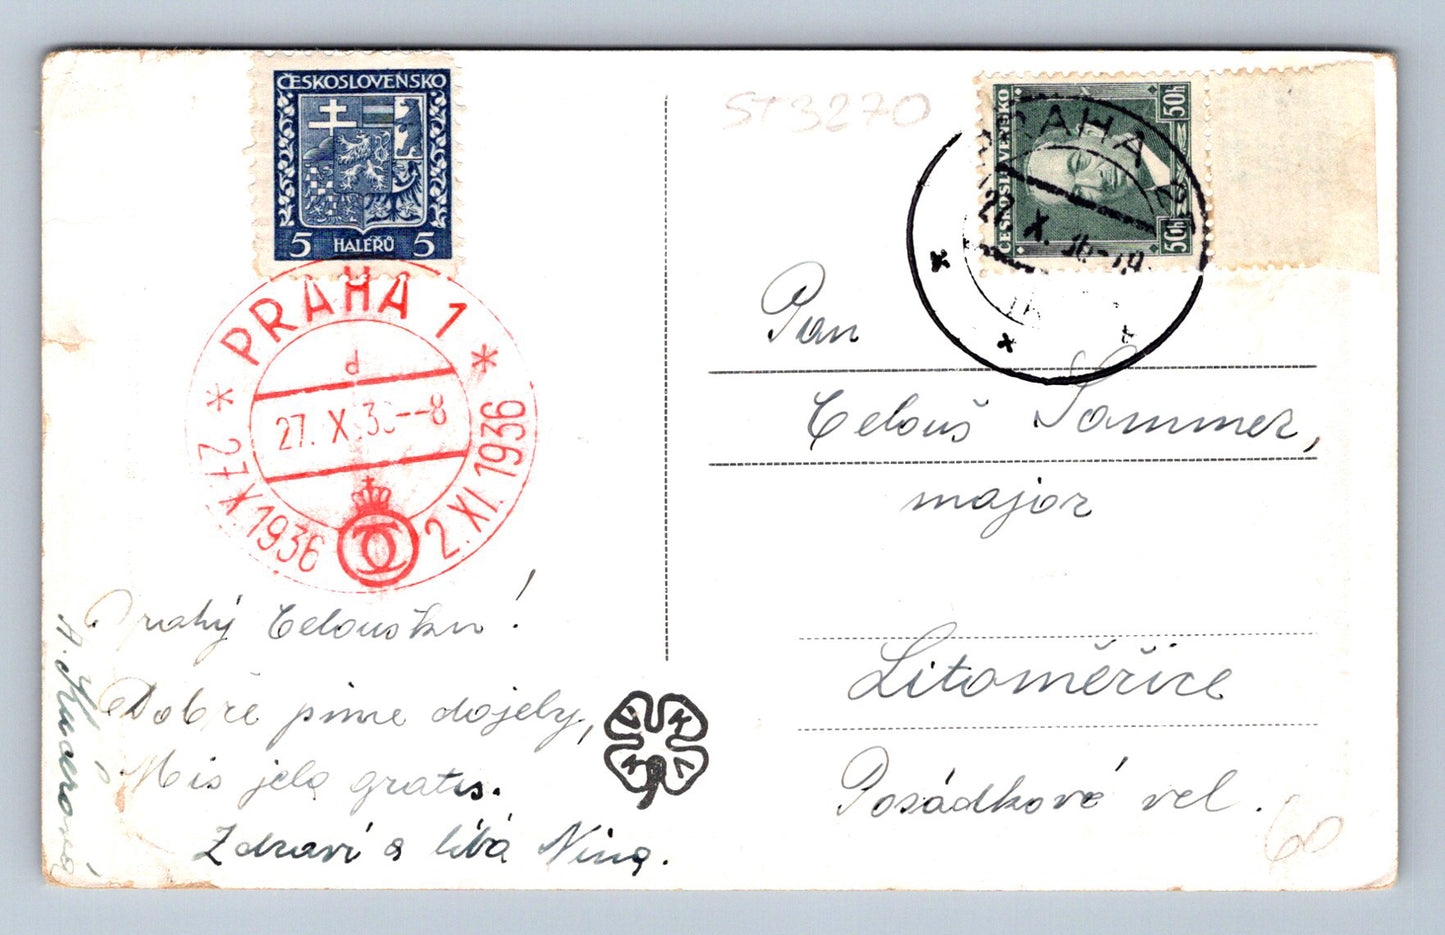 ČESKOSLOVENSKO
5 HALÉŘŮ 5
PRAHA 1
d
27. X 36--8
* 27. X. 1936 2. XI. 1936 *
Drahý Celoušku!
Dobře jsme dojely,
Mis jela gratis.
Zdraví a líbá Nina.
ST3270
ČESKOSLOVENSKO
50h 50h
PRAHA
27. X. 36
Pan
Celouš Sommer,
major
Litoměřice
Posádkové vel.
60
V K K V